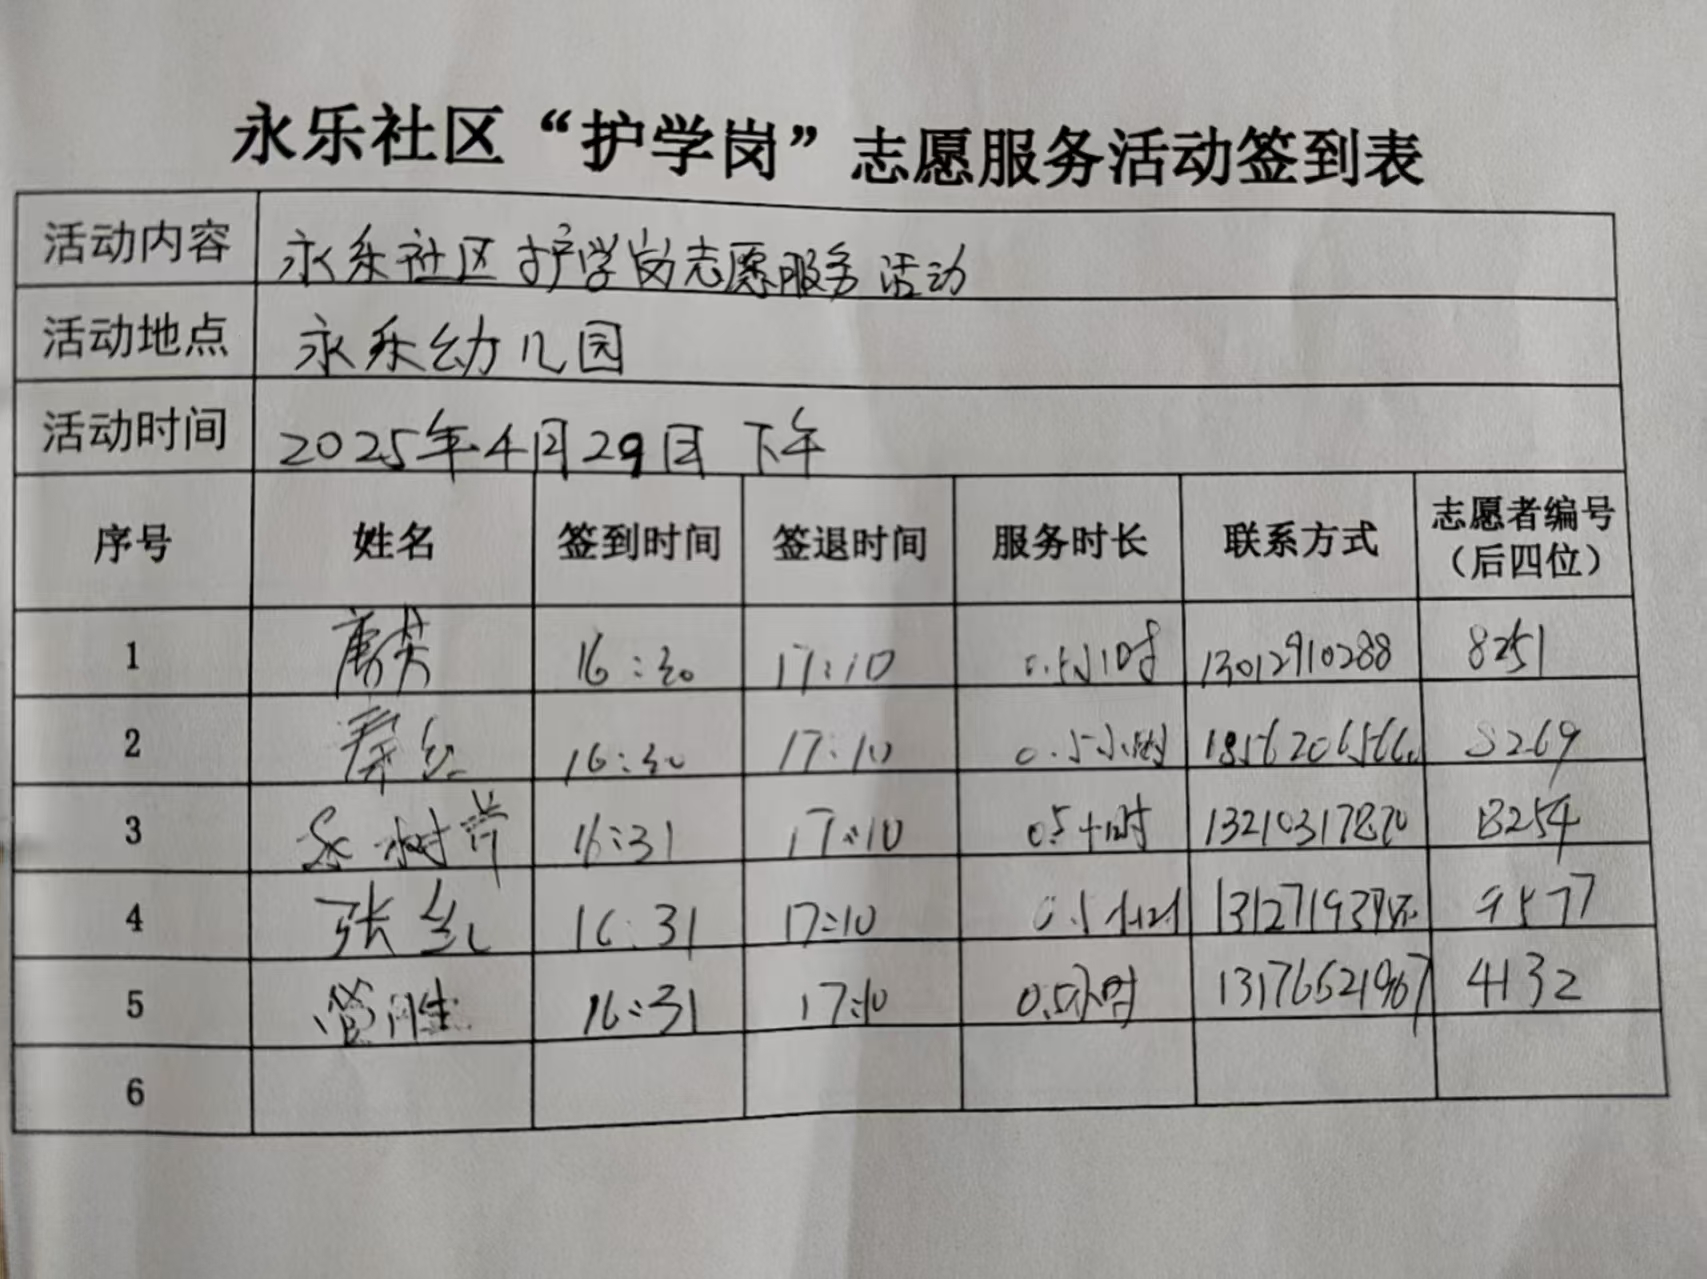 永乐社区“护学岗”志愿服务活动签到表
活动内容 永乐社区护学岗志愿服务活动
活动地点 永乐幼儿园
活动时间 2025年4月29日 下午
序号 姓名 签到时间 签退时间 服务时长 联系方式 志愿者编号（后四位）
1 16:30 17:10 0.5小时 13012910288 8251
2 16:30 17:10 0.5小时 3269
3 16:31 17:10 0.5小时 13210317870 8254
4 张红 16:31 17:10 0.5小时 9577
5 16:31 17:10 0.5小时 13176521967 4132
6